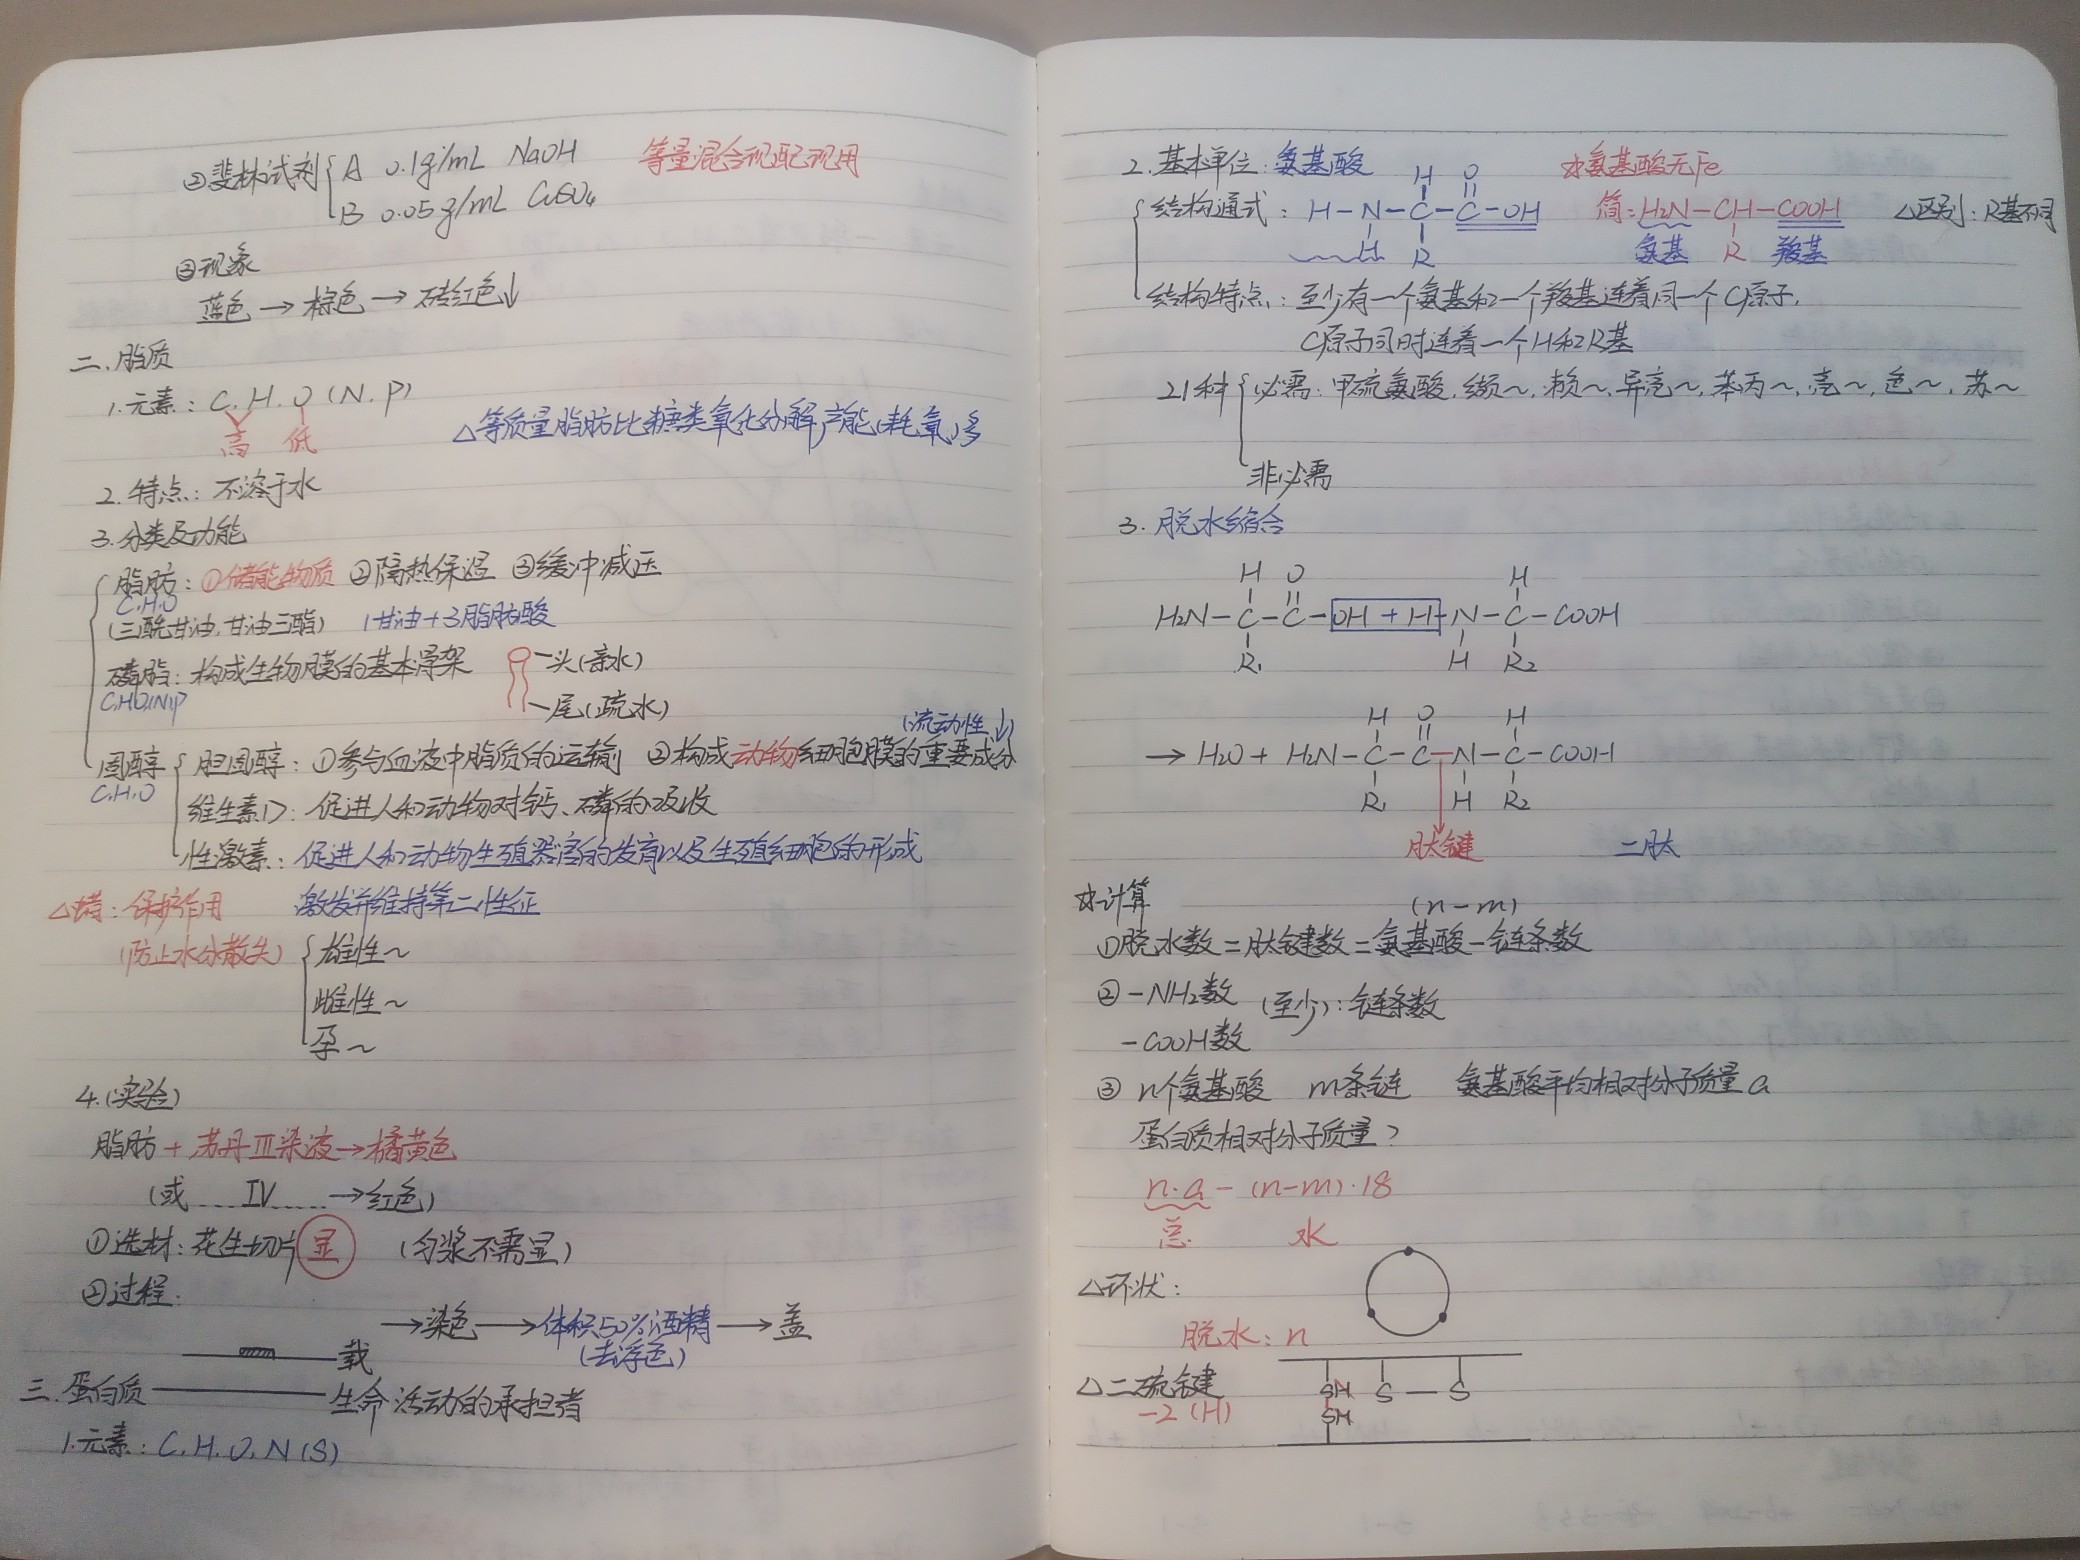 ②斐林试剂 A 0.1g/mL NaOH 等量混合现配现用
B 0.05g/mL CuSO₄
③现象
蓝色 → 棕色 → 砖红色↓
二.脂质
1.元素: C.H.O (N.P)
高 低
△等质量脂肪比糖类氧化分解产能(耗氧)多
2.特点: 不溶于水
3.分类及功能
脂肪: ①储能物质 ②隔热保温 ③缓冲减压
C.H.O
(三酰甘油.甘油三酯) 1甘油+3脂肪酸
磷脂: 构成生物膜的基本骨架 头(亲水)
C.H.O.(N)P 尾(疏水)
(流动性↓)
固醇 胆固醇: ①参与血液中脂质的运输 ②构成动物细胞膜的重要成分
C.H.O
维生素D: 促进人和动物对钙、磷的吸收
性激素: 促进人和动物生殖器官的发育以及生殖细胞的形成
激发并维持第二性征
△蜡: 保护作用
(防止水分散失) 雄性~
雌性~
孕~
4.(实验)
脂肪 + 苏丹Ⅲ染液→橘黄色
(或 …… Ⅳ …… →红色)
①选材: 花生切片 显 (匀浆不需显)
②过程.
→染色→体积50%酒精→盖
(去浮色)
载
三.蛋白质——生命活动的承担者
1.元素: C.H.O.N(S)
2.基本单位: 氨基酸 ☆氨基酸无Fe
H O
结构通式: H-N-C-C-OH 简: H₂N-CH-COOH △区别: R基不同
H R 氨基 R 羧基
结构特点: 至少有一个氨基和一个羧基连着同一个C原子,
C原子同时连着一个H和R基
21种 必需: 甲硫氨酸,缬~,赖~,异亮~,苯丙~,亮~,色~,苏~
非必需
3.脱水缩合
H O H
H₂N-C-C-OH + H-N-C-COOH
R₁ H R₂
H O H
→ H₂O + H₂N-C-C-N-C-COOH
R₁ H R₂
肽键 二肽
☆计算 (n-m)
①脱水数=肽键数=氨基酸-链条数
②-NH₂数 (至少): 链条数
-COOH数
③ n个氨基酸 m条链 氨基酸平均相对分子质量a
蛋白质相对分子质量?
n·a - (n-m)·18
总 水
△环状:
脱水: n
△二硫键 SH S-S
-2(H) SH